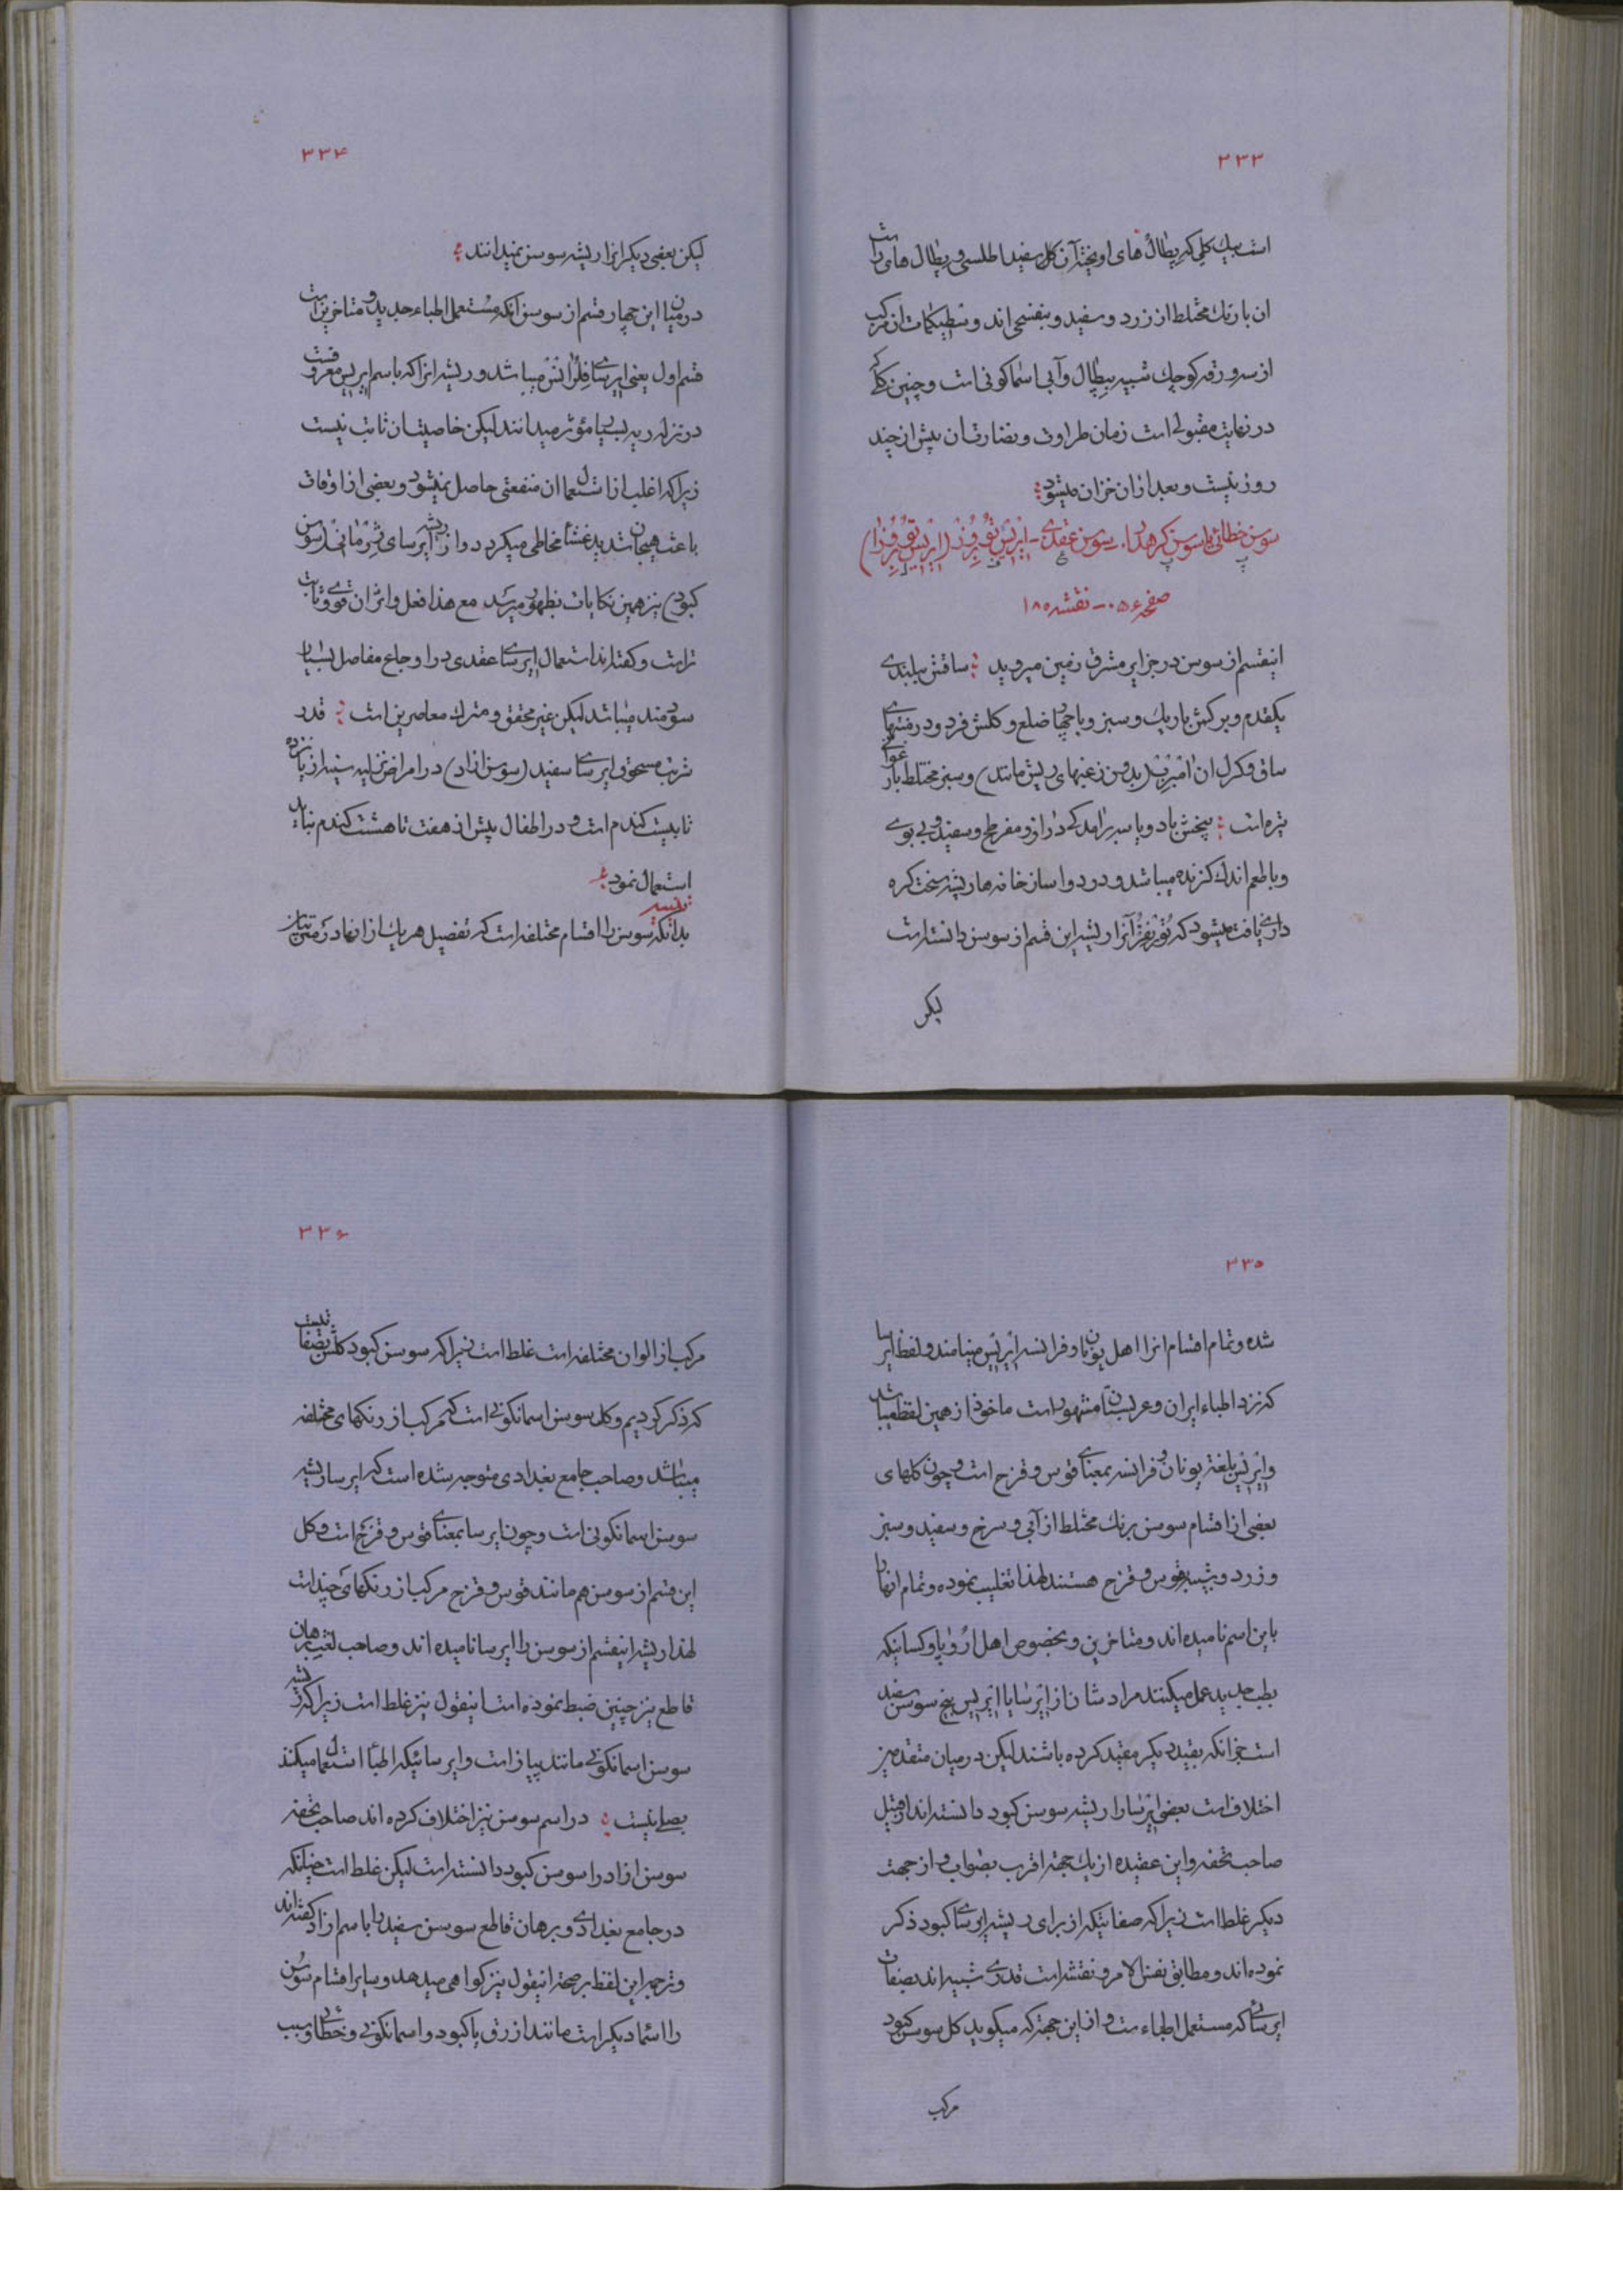 ۳۳۳
است بیك گلی که پطال های اویخته آن گل سفید اطلسی و پطال های راست
ان با رنك مختلط از زرد و سفید و بنفسجی اند و سطیگمات ان مرکب
از سه ورقه کوچك شبیه بپطال و آبی اسمانکونی است و چنین گلی که
در نهایت مقبولی است زمان طراوت و نضارت ان بیش از چند
روز نیست و بعد از ان خزان میشود
سوسن خطائی یا سوسن گره دار، سوسن عقدی - ایریس
صفحه ۰۵۶ - نقشه ۱۸۵
اینقسم از سوسن در جزایر مشرق زمین میروید ساقش ببلندی
یکقدم و برگش باریك و سبز و با چهار ضلع و گلش فرد و در منتهای
ساق و کرل ان امبرب (بدون زغبهای ریش مانند) و سبز مختلط بارغوانی
تیره است بیخش باد و یا سه برامدگی دراز و مفرطح و سفید و بی بوی
و با طعم اندك گزنده میباشد و در دواسازخانه ها ریشه سخت گره
داری یافت میشود که تورنفر آنرا ریشه این قسم از سوسن دانسته است
لیکن
۳۳۴
لیکن بعضی دیگر انرا ریشه سوسن نمیدانند
در میان این چهار قسم از سوسن انکه مستعمل اطباء جدید و متاخرین است
قسم اول یعنی ایرسای فلرانس میباشد و ریشه انرا که باسم ایریس معروفست
در نزله ریه بسیار مؤثر میدانند لیکن خاصیتان ثابت نیست
زیرا که اغلب از استعمال ان منفعتی حاصل نمیشود و بعضی از اوقات
باعث هیجان شدید غشاء مخاطی میگردد و از ریشه ایرسای ژرمانی (سوسن
کبود) نیز همین نکایات بظهور میرسد مع هذا فعل و اثر ان قوی و ثابت
تر است و گفته اند استعمال ایرسای عقدی در اوجاع مفاصل بسیار
سودمند میباشد لیکن غیر محقق و متروك معاصرین است قدر
شربت مسحوق ایرسای سفید (سوسن ازاد) در امراض نزلیه سینه از پانزده
تا بیست گندم است و در اطفال بیش از هفت تا هشت گندم نباید
استعمال نمود
تنبیه
بدانکه سوسن را اقسام مختلفه است که تفصیل هر یك از انها در متن بیان
۳۳۵
شده و تمام اقسام انرا اهل یونان و فرانسه ایریس مینامند و لفظ ایرسا
که نزد اطباء ایران و عربستان مشهور است ماخوذ از همین لفظ میباشد
و ایریس بلغة یونان و فرانسه بمعنای قوس و قزح است و چون گلهای
بعضی از اقسام سوسن برنك مختلط از آبی و سرخ و سفید و سبز
و زرد و شبیه بقوس و قزح هستند لهذا تغلیب نموده و تمام انها را
باین اسم نامیده اند و متاخرین و بخصوص اهل اروپا و کسانیکه
بطب جدید عمل میکنند مرادشان از ایرسا یا ایریس بیخ سوسن سفید
است جز انکه بقید دیگر مقید کرده باشند لیکن در میان متقدمین
اختلاف است بعضی ایرسا را ریشه سوسن کبود دانسته اند از قبیل
صاحب تحفه و این عقیده از یك جهة اقرب بصواب و از جهت
دیگر غلط است زیرا که صفاتیکه از برای ریشه ایرسای کبود ذکر
نموده اند و مطابق نفس الامر و نقشه است قدری شبیه اند بصفات
ایرسائی که مستعمل اطباء ست و از این جهة که میگوید گل سوسن کبود
مرکب
۳۳۶
مرکب از الوان مختلفه است غلط است زیرا که سوسن کبود گلش بصفاتیست
که ذکر کردیم و گل سوسن اسمانکونی است که مرکب از رنگهای مختلفه
میباشد و صاحب جامع بغدادی متوجه شده است که ایرسا ریشه
سوسن اسمانکونی است و چون ایرسا بمعنای قوس و قزح است و گل
این قسم از سوسن هم مانند قوس و قزح مرکب از رنگهای چند است
لهذا ریشه اینقسم از سوسن را ایرسا نامیده اند و صاحب لغت برهان
قاطع نیز چنین ضبط نموده است اینقول نیز غلط است زیرا که ریشه
سوسن اسمانکونی مانند پیاز است و ایرسائیکه اطباء استعمال میکنند
بصلی نیست در اسم سوسن نیز اختلاف کرده اند صاحب تحفه
سوسن ازاد را سوسن کبود دانسته است لیکن غلط است چنانکه
در جامع بغدادی و برهان قاطع سوسن سفید را باسم ازاد گفته اند
و ترجمه این لفظ بر صحة اینقول نیز گواهی میدهد و سایر اقسام سوسن
را اسماء دیگر است مانند ازرق یا کبود و اسمانکونی و خطائی و